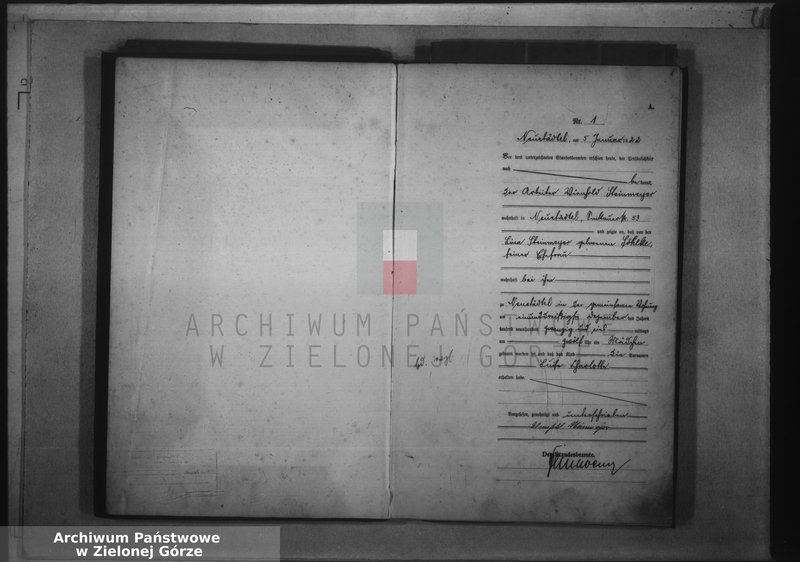 A.
Nr. 1
Neustädtel, am 5 Januar 1922
Vor dem unterzeichneten Standesbeamten erschien heute, der Persönlichkeit
nach
bekannt,
der Arbeiter Steinmeyer
wohnhaft in Neustädtel, 53
und zeigte an, daß von der
Steinmeyer geborenen
seiner Ehefrau
wohnhaft bei ihm
zu Neustädtel in der Wohnung
am einunddreißigsten Dezember des Jahres
tausend neunhundert zwanzig und eins mittags
um zwölf Uhr ein Mädchen
geboren worden sei und daß das Kind die Vornamen
Charlotte
erhalten habe.
Vorgelesen, genehmigt und unterschrieben
Der Standesbeamte.
ARCHIWUM PAŃSTWOWE
W ZIELONEJ GÓRZE
Archiwum Państwowe
w Zielonej Górze